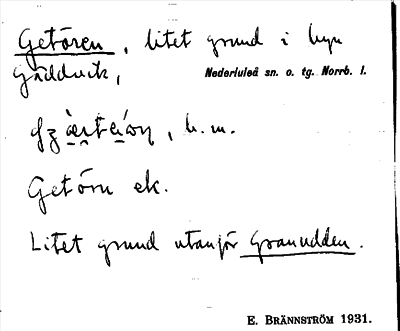 Getören, litet grund i byn
Gäddvik,
Nederluleå sn. o. tg. Norrb. l.
h. m.
Getörn ek.
Litet grund utanför Granudden.
E. BRÄNNSTRÖM 1931.